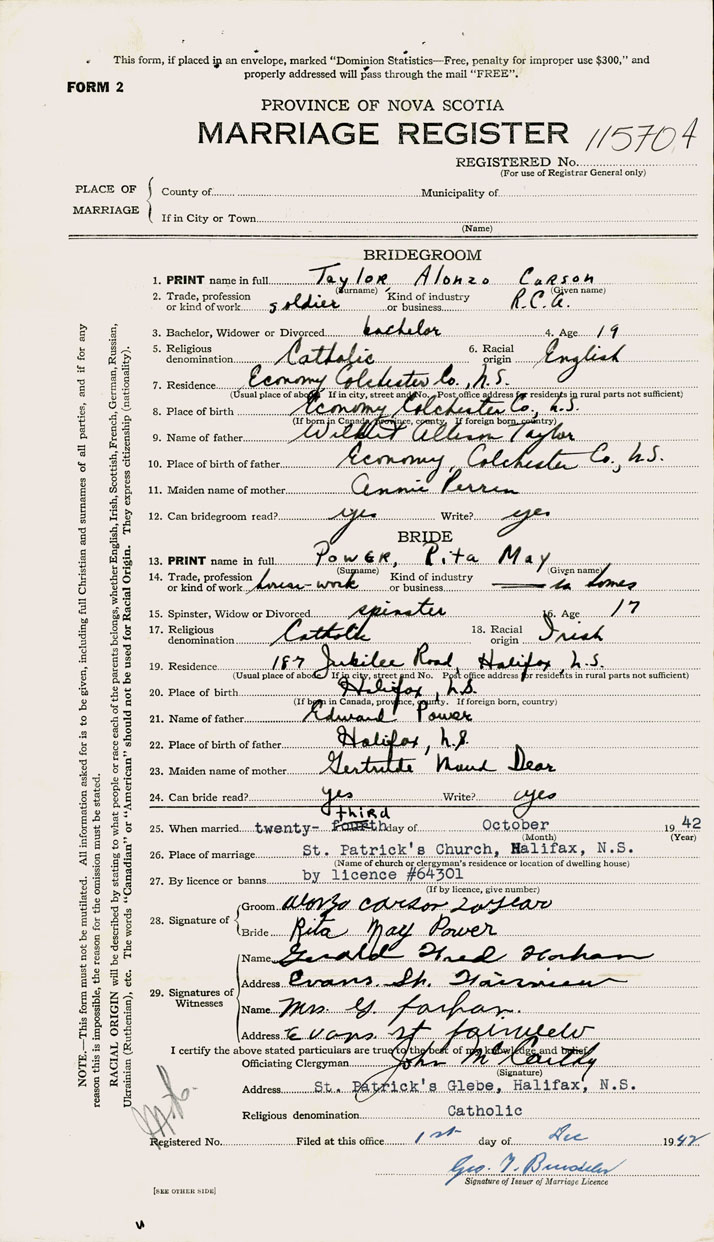 This form, if placed in an envelope, marked "Dominion Statistics—Free, penalty for improper use $300," and
properly addressed will pass through the mail "FREE".
FORM 2
PROVINCE OF NOVA SCOTIA
MARRIAGE REGISTER 115704
REGISTERED No.
(For use of Registrar General only)
PLACE OF MARRIAGE
County of Municipality of
If in City or Town
(Name)
BRIDEGROOM
1. PRINT name in full Taylor Alonzo Carson
(Surname) (Given name)
2. Trade, profession or kind of work soldier Kind of industry or business R.C.A.
3. Bachelor, Widower or Divorced bachelor 4. Age 19
5. Religious denomination Catholic 6. Racial origin English
7. Residence Economy Colchester Co., N.S.
(Usual place of abode If in city, street and No. Post office address for residents in rural parts not sufficient)
8. Place of birth Economy Colchester Co., N.S.
(If born in Canada, province, county. If foreign born, country)
9. Name of father Wilfred Allison Taylor
10. Place of birth of father Economy, Colchester Co., N.S.
11. Maiden name of mother Annie Perrin
12. Can bridegroom read? yes Write? yes
BRIDE
13. PRINT name in full POWER, Rita May
(Surname) (Given name)
14. Trade, profession or kind of work house-work Kind of industry or business in homes
15. Spinster, Widow or Divorced spinster 16. Age 17
17. Religious denomination Catholic 18. Racial origin Irish
19. Residence 187 Jubilee Road, Halifax, N.S.
(Usual place of abode If in city, street and No. Post office address for residents in rural parts not sufficient)
20. Place of birth Halifax, N.S.
(If born in Canada, province, county. If foreign born, country)
21. Name of father Edward Power
22. Place of birth of father Halifax, N.S.
23. Maiden name of mother Gertrude Maud Dear
24. Can bride read? yes Write? yes
third
25. When married twenty- fourth day of October 1942
(Month) (Year)
26. Place of marriage St. Patrick's Church, Halifax, N.S.
(Name of church or clergyman's residence or location of dwelling house)
27. By licence or banns by licence #64301
(If by licence, give number)
28. Signature of
Groom Alonzo Carson
Bride Rita May Power
29. Signatures of Witnesses
Name Gerald Fred
Address Evans St. Fairview
Name Mrs. G.
Address Evans St
I certify the above stated particulars are true to the best of my knowledge and belief.
Officiating Clergyman John McCarthy
(Signature)
Address St. Patrick's Glebe, Halifax, N.S.
Religious denomination Catholic
Registered No. Filed at this office 1st day of Dec 1942
Geo.
Signature of Issuer of Marriage Licence
[SEE OTHER SIDE]
NOTE.—This form must not be mutilated. All information asked for is to be given, including full Christian and surnames of all parties, and if for any
reason this is impossible, the reason for the omission must be stated.
RACIAL ORIGIN will be described by stating to what people or race each of the parents belongs, whether English, Irish, Scottish, French, German, Russian,
Ukrainian (Ruthenian), etc. The words "Canadian" or "American" should not be used for Racial Origin. They express citizenship (nationality).